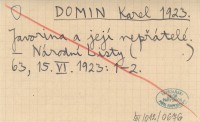 DOMIN Karel 1923.
Javorina a její nepřátelé.
– Národní Listy ( .)
63, 15. VI. 1923: 1–2.